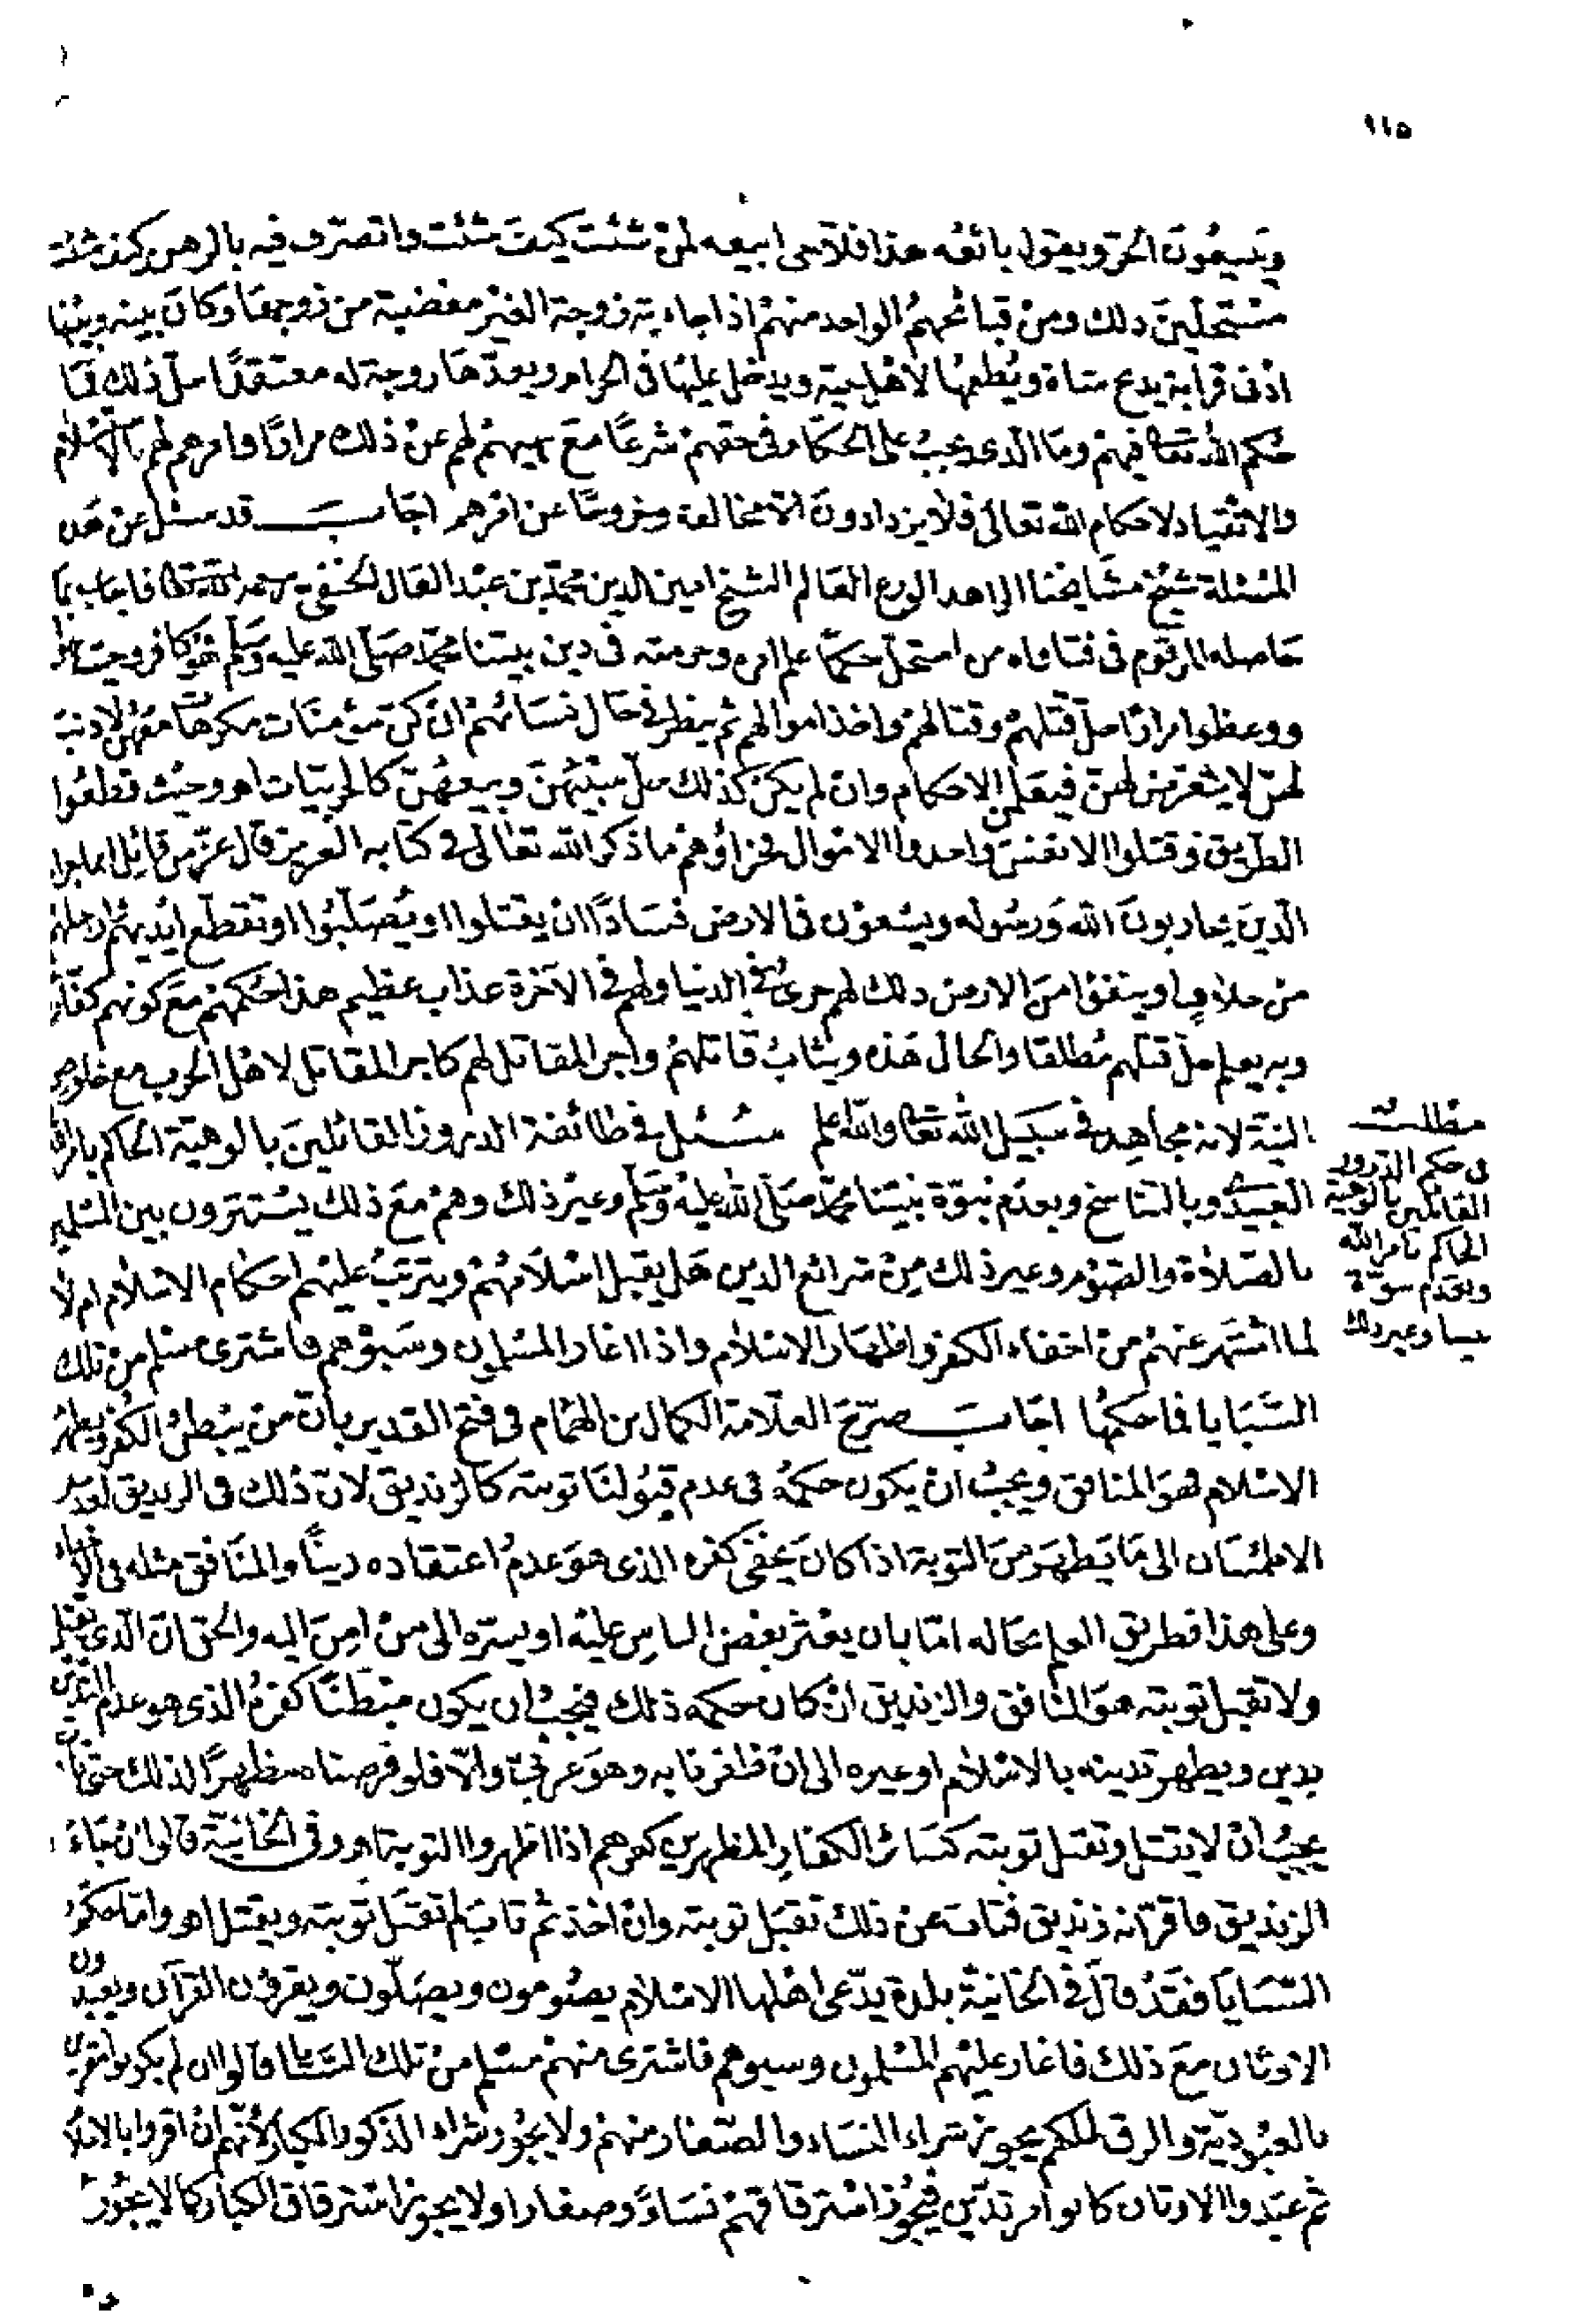 ١١٥
ويبيعون الحر ويقول بائعه هذا فلاحي ابيعه لمن شئت كيف شئت واتصرف فيه بالرهن وكيف شئت
مستحلين ذلك ومن قبائحهم الواحد منهم اذا جاءته زوجة الغير مغضبة من زوجها وكان بينه وبينها
ادنى قرابة يدع شاة ويطعمها لاهل بيته ويدخل عليها في الحرام ويعدها زوجة له معتقدا حل ذلك فما
حكم الله تعالى فيهم وما الذي يجب على الحكام في حقهم شرعا مع نهيهم لهم عن ذلك مرارا وامرهم لهم بالاسلام
والانقياد لاحكام الله تعالى فلا يزدادون الا مخالفة وخروجا عن امرهم اجاب قد سئل عن هذه
المسئلة شيخ مشايخنا الزاهد الورع العالم الشيخ امين الدين محمد بن عبد العال الحنفي رحمه الله تعالى فاجاب بما
حاصله المرقوم في فتاواه من استحل حكما علم امره وحرمته في دين نبينا محمد صلى الله عليه وسلم فهو كافر وحيث
ووعظوا مرارا حل قتلهم وقتالهم واخذ اموالهم ثم ينظر في حال نسائهم ان كن مؤمنات مكرهات معهم لا ذنب
لهن لا يتعرض لهن فيعلمن الاحكام وان لم يكن كذلك حل سبيهن وبيعهن كالحربيات اهـ وحيث قطعوا
الطريق وقتلوا الانفس واخذوا الاموال فجزاؤهم ما ذكر الله تعالى في كتابه العزيز قال عز من قائل انما جزاء
الذين يحاربون الله ورسوله ويسعون في الارض فسادا ان يقتلوا او يصلبوا او تقطع ايديهم وارجلهم
من خلاف او ينفوا من الارض ذلك لهم خزي في الدنيا ولهم في الآخرة عذاب عظيم هذا حكمهم مع كونهم كفار
وبه يعلم حل قتلهم مطلقا والحال هذه ويثاب قاتلهم واجر المقاتل لهم كاجر المقاتل لاهل الحرب مع خلوص
النية لانه مجاهد في سبيل الله تعالى والله اعلم سئل في طائفة الدروز القائلين بالوهية الحاكم بامر الله
العبيدي وبالتناسخ وبعدم نبوة نبينا محمد صلى الله عليه وسلم وغير ذلك وهم مع ذلك يستترون بين المسلمين
بالصلاة والصوم وغير ذلك من شرائع الدين هل يقبل اسلامهم ويترتب عليهم احكام الاسلام ام لا
لما اشتهر عنهم من اخفاء الكفر واظهار الاسلام واذا اغار المسلمون وسبوهم فاشترى مسلم من تلك
السبايا فما حكمها اجاب صرح العلامة الكمال بن الهمام في فتح القدير بان من يبطن الكفر ويظهر
الاسلام فهو المنافق ويجب ان يكون حكمه في عدم قبولنا توبته كالزنديق لان ذلك في الزنديق لعدم
الاطمئنان الى ما يظهر من التوبة اذا كان يخفي كفره الذي هو عدم اعتقاده دينا والمنافق مثله في الاخفاء
وعلى هذا فطريق العلم بحاله اما بان يعثر بعض الناس عليه او يسره الى من امن اليه والحق ان الذي يقتل
ولا تقبل توبته هو المنافق والزنديق ان كان حكمه ذلك فيجب ان يكون مبطنا كفره الذي هو عدم التدين
بدين ويظهر تدينه بالاسلام او غيره الى ان ظفرنا به وهو عربي والا فلو فرضناه مظهرا لذلك حتى تاب
يجب ان لا يقتل وتقبل توبته كسائر الكفار المظهرين كفرهم اذا اظهروا التوبة اهـ وفي الخانية قالوا ان جاء
الزنديق فاقر انه زنديق فتاب عن ذلك تقبل توبته وان اخذ ثم تاب لم تقبل توبته ويقتل اهـ واما حكم
السبايا فقد قال في الخانية بلدة يدعى اهلها الاسلام يصومون ويصلون ويقرؤن القرآن ويعبدون
الاوثان مع ذلك فاغار عليهم المسلمون وسبوهم فاشترى منهم مسلم من تلك السبايا قالوا ان لم يكونوا مقرين
بالعبودية والرق لملكهم يجوز شراء النساء والصغار منهم ولا يجوز شراء الذكور الكبار لانهم ان اقروا بالاسلام
ثم عبدوا الاوثان كانوا مرتدين فيجوز استرقاقهم نساء وصغارا ولا يجوز استرقاق الكبار كما لا يجوز
مطلب
في حكم الدروز
القائلين بالوهية
الحاكم بامر الله
وبعدم نبوة
نبينا وغير ذلك